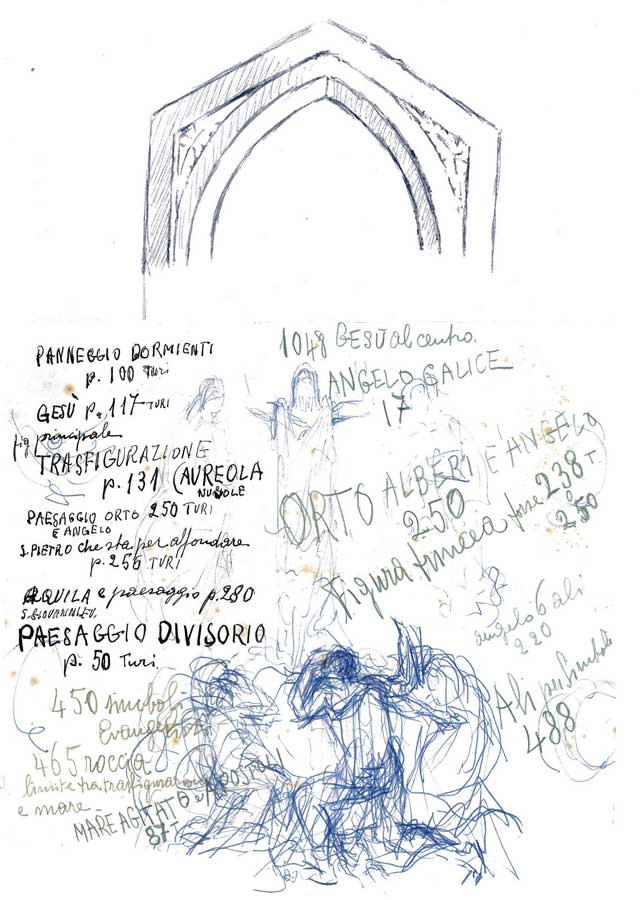 PANNEGGIO DORMIENTI
p. 100 TURI
GESÙ p. 117 TURI
fig principale
TRASFIGURAZIONE
p. 131 (AUREOLA
NUVOLE
PAESAGGIO ORTO 250 TURI
E ANGELO
S. PIETRO che sta per affondare
p. 256 TURI
AQUILA e paesaggio p. 280
S. GIOVANNI EV.
PAESAGGIO DIVISORIO
p. 50 TURI
450 simboli
Evangelisti
465 roccia
limite tra trasfigurazione
e mare
MARE AGITATO e APOSTOLI
87 T
1048 GESÙ al centro.
ANGELO CALICE
17
ORTO ALBERI E ANGELO
250
forse 238 T.
o 250
Figura
angelo 6 ali
220
Ali per simboli
488